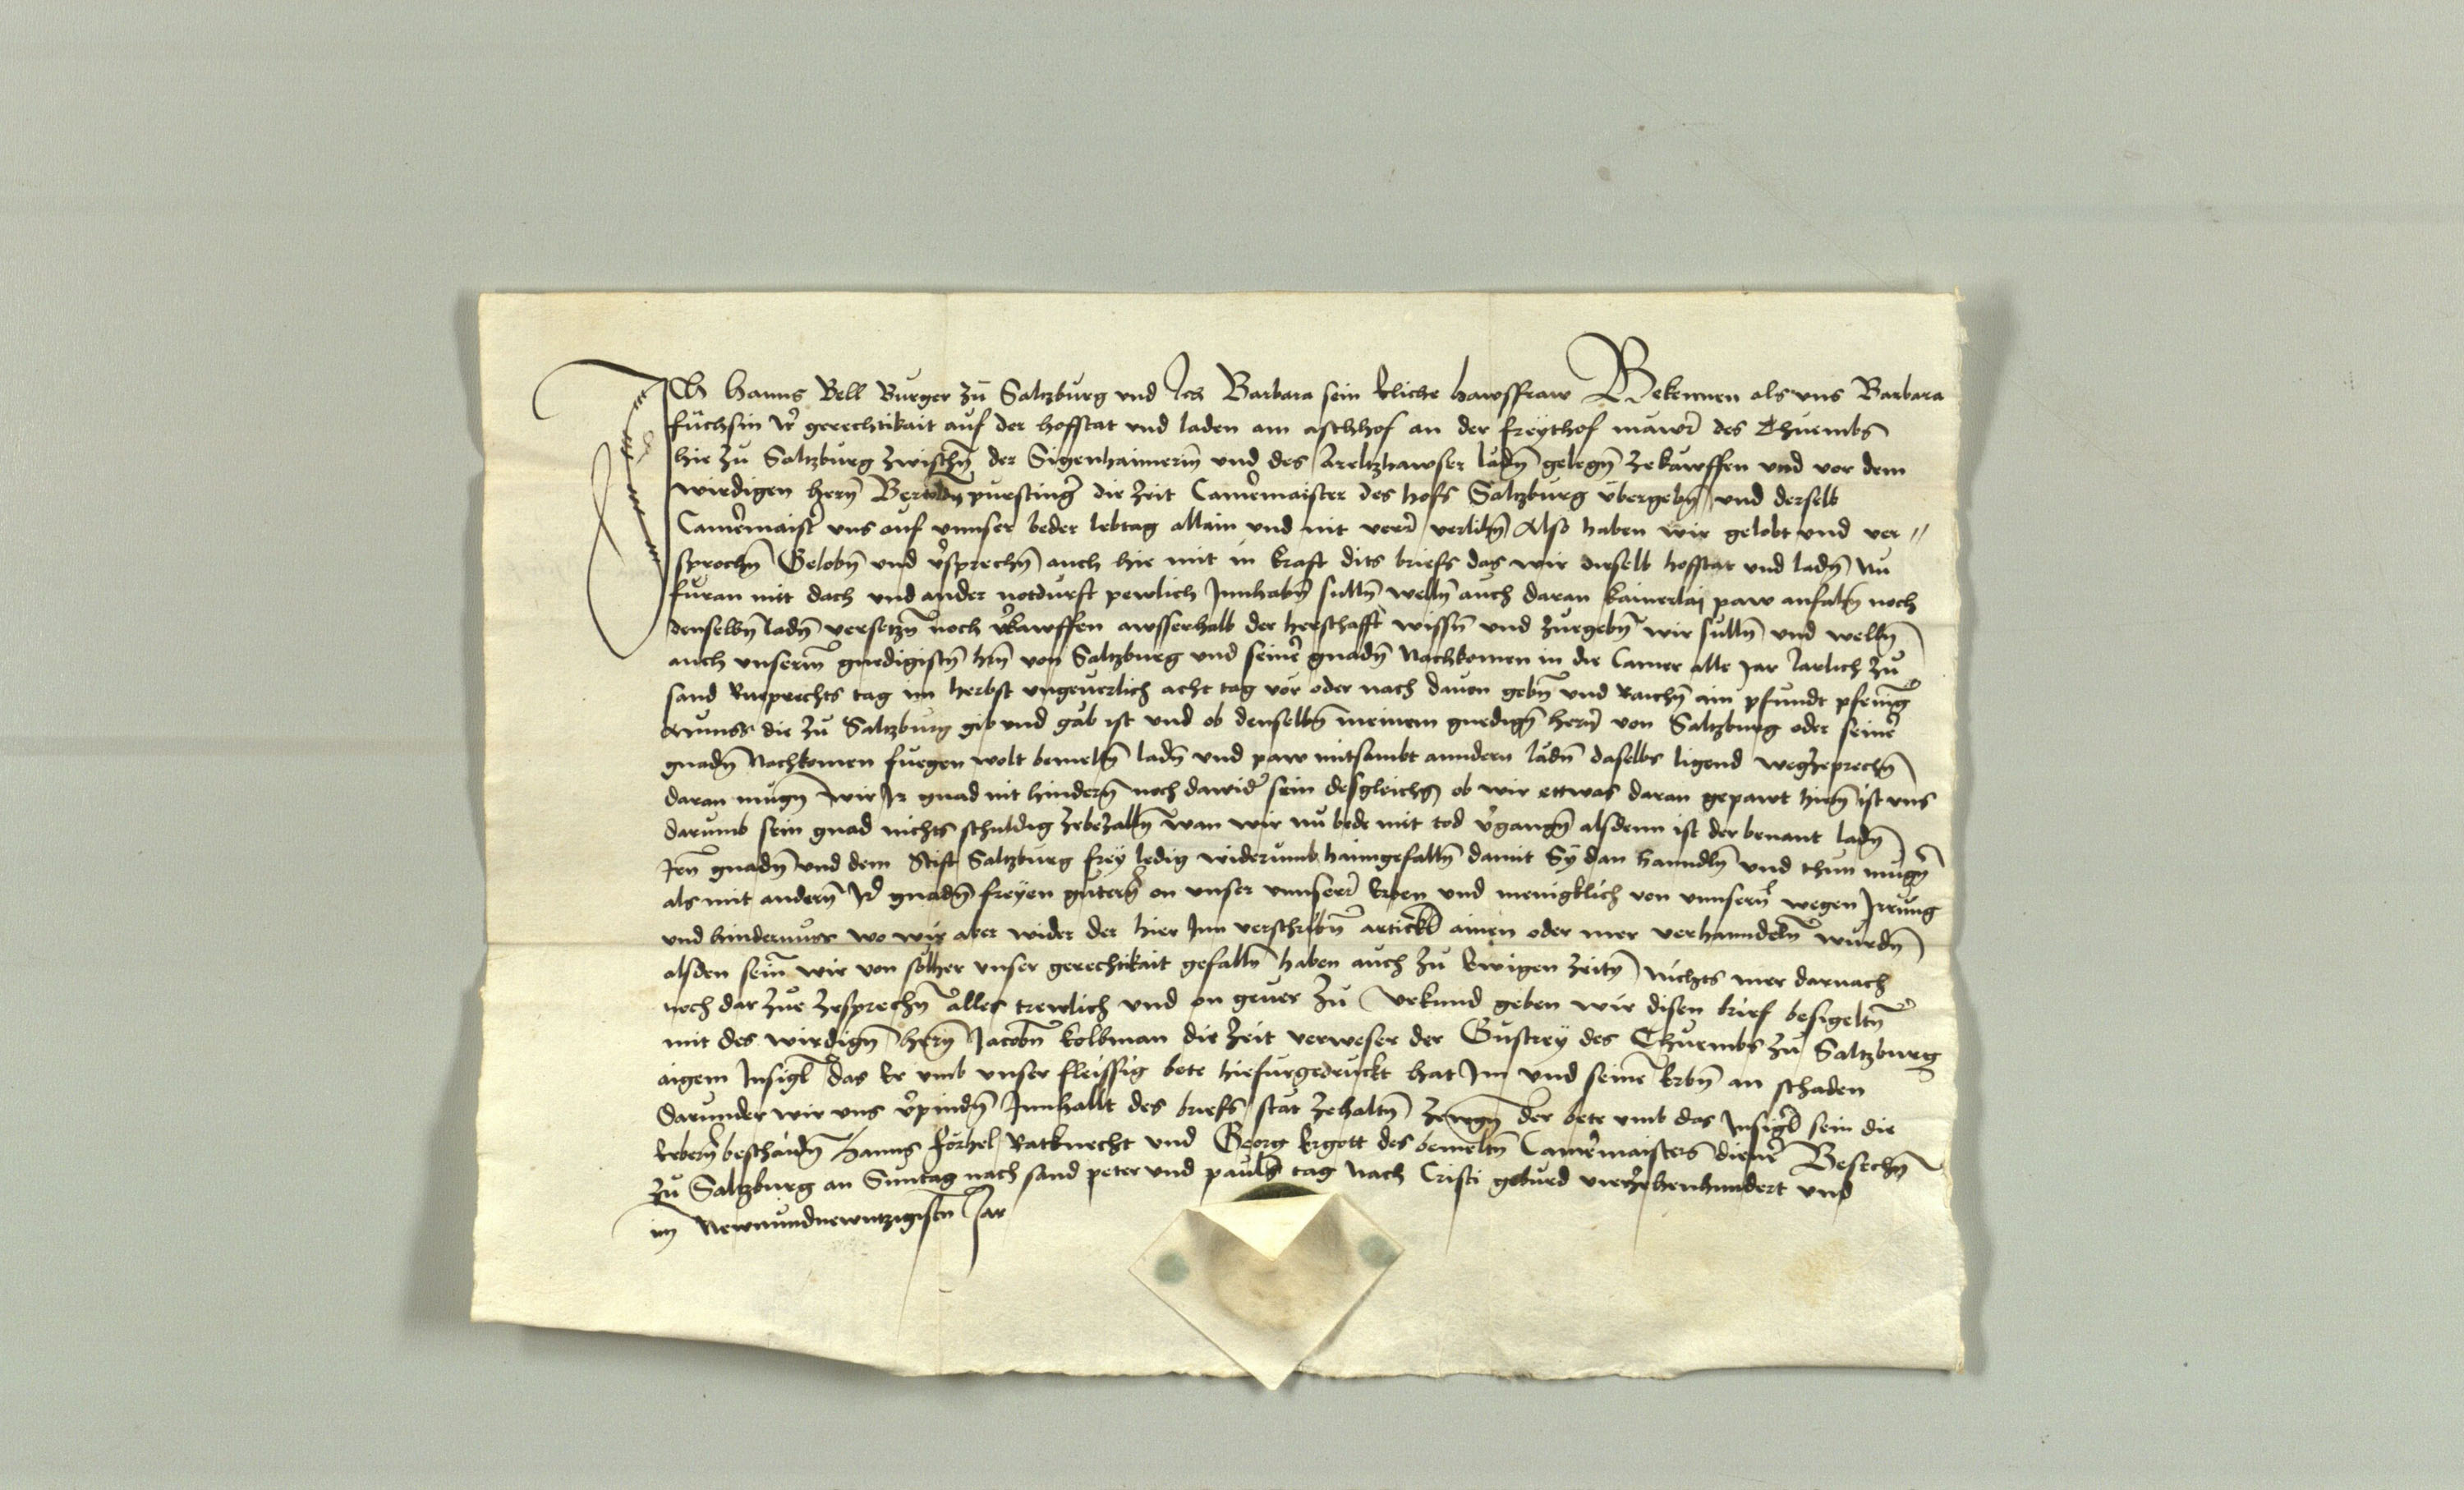 Ich Hanns Bell Burger zu Saltzburg und Ich Barbara sein Eliche hawsfraw Bekennen als uns Barbara
füchsin Ir gerechtikait auf der hofstat und laden am aschhof an der freythof mawr des Thuembs
hie zu Saltzburg zwischn der Sigenhaimerin und des laden gelegn zekawffen und vor dem
wirdigen hern Bertoldn purstinger die zeit Camermaister des hofs Saltzburg übergebn und derselb
Camermaister uns auf unnser beder lebtag allain und nit verrer verlihn Also haben wir gelobt und ver〃
sprochn Gelobn und versprechn auch hie mit in kraft dits briefs das wir dieselb hofstat und ladn Nu
furan mit dach und ander notdurft pewlich Innhabn sulln welln auch daran kainerlaj paw anfahn noch
denselbn ladn versetzn noch verkawffen awsserhalb der herschafft wissn und zuegebn wir sulln und welln
auch unserm gnedigistn hern von Saltzburg und seiner gnadn Nachkomen in die Camer alle Jar Jarlich zu
sand Rueprechts tag im herbst ungeverlich acht tag vor oder nach davon gebn und Raichn ain pfundt pfening
Munss die zu Saltzburg gib und gäb ist und ob denselbn meinem gnedign hern von Saltzburg oder seiner
gnadn Nachkomen fuegen wolt bemeltn ladn und paw mitsambt anndern lädn daselbs ligend wegzeprechn
daran mugn wir Ir gnad nit hindern noch dawider sein desgleichn ob wir ettwas daran gepawt hietn ist uns
darumb sein gnad nichts schuldig zebezalln wan wir nu bede mit tod vergangn alsdenn ist der benant ladn
Iren gnadn und dem Stift Saltzburg frey ledig widerumb haimgefalln damit Sy dan hanndln und thun mugn
als mit andern Ir gnadn freyen gutern on unser unnserer Erben und menigklich von unnsern wegen Irrung
und hindernuss wo wir aber wider der hier Inn verschribn artickl ainen oder mer verhanndeln wurdn
alsden sein wir von sölher unser gerechtikait gefalln haben auch zu Ewigen zeitn Nichts mer darnach
noch dar zue zesprechn alles trewlich und on gever zu Urkund geben wir disen brief besigeltn
mit des wirdign hern Jacobn kolbman die zeit verweser der Gustrey des Thuembs zu Saltzburg
aigem Insigl das Er umb unser fleissig bete hiefurgedruckt hat Im und seinen Erbn an schaden
darunder wir uns verpindn Innhallt des briefs stat zehaltn zewgn der bete umb das Insigl sein die
Erbern beschaidn Hanns Ratknecht und Georg Ergott des bemeltn Camermaisters diener Beschechn
zu Saltzburg an Suntag nach sand peter und pauls tag Nach Cristi geburd vierzehenhundert und
im Newnundnewntzigisten Jar